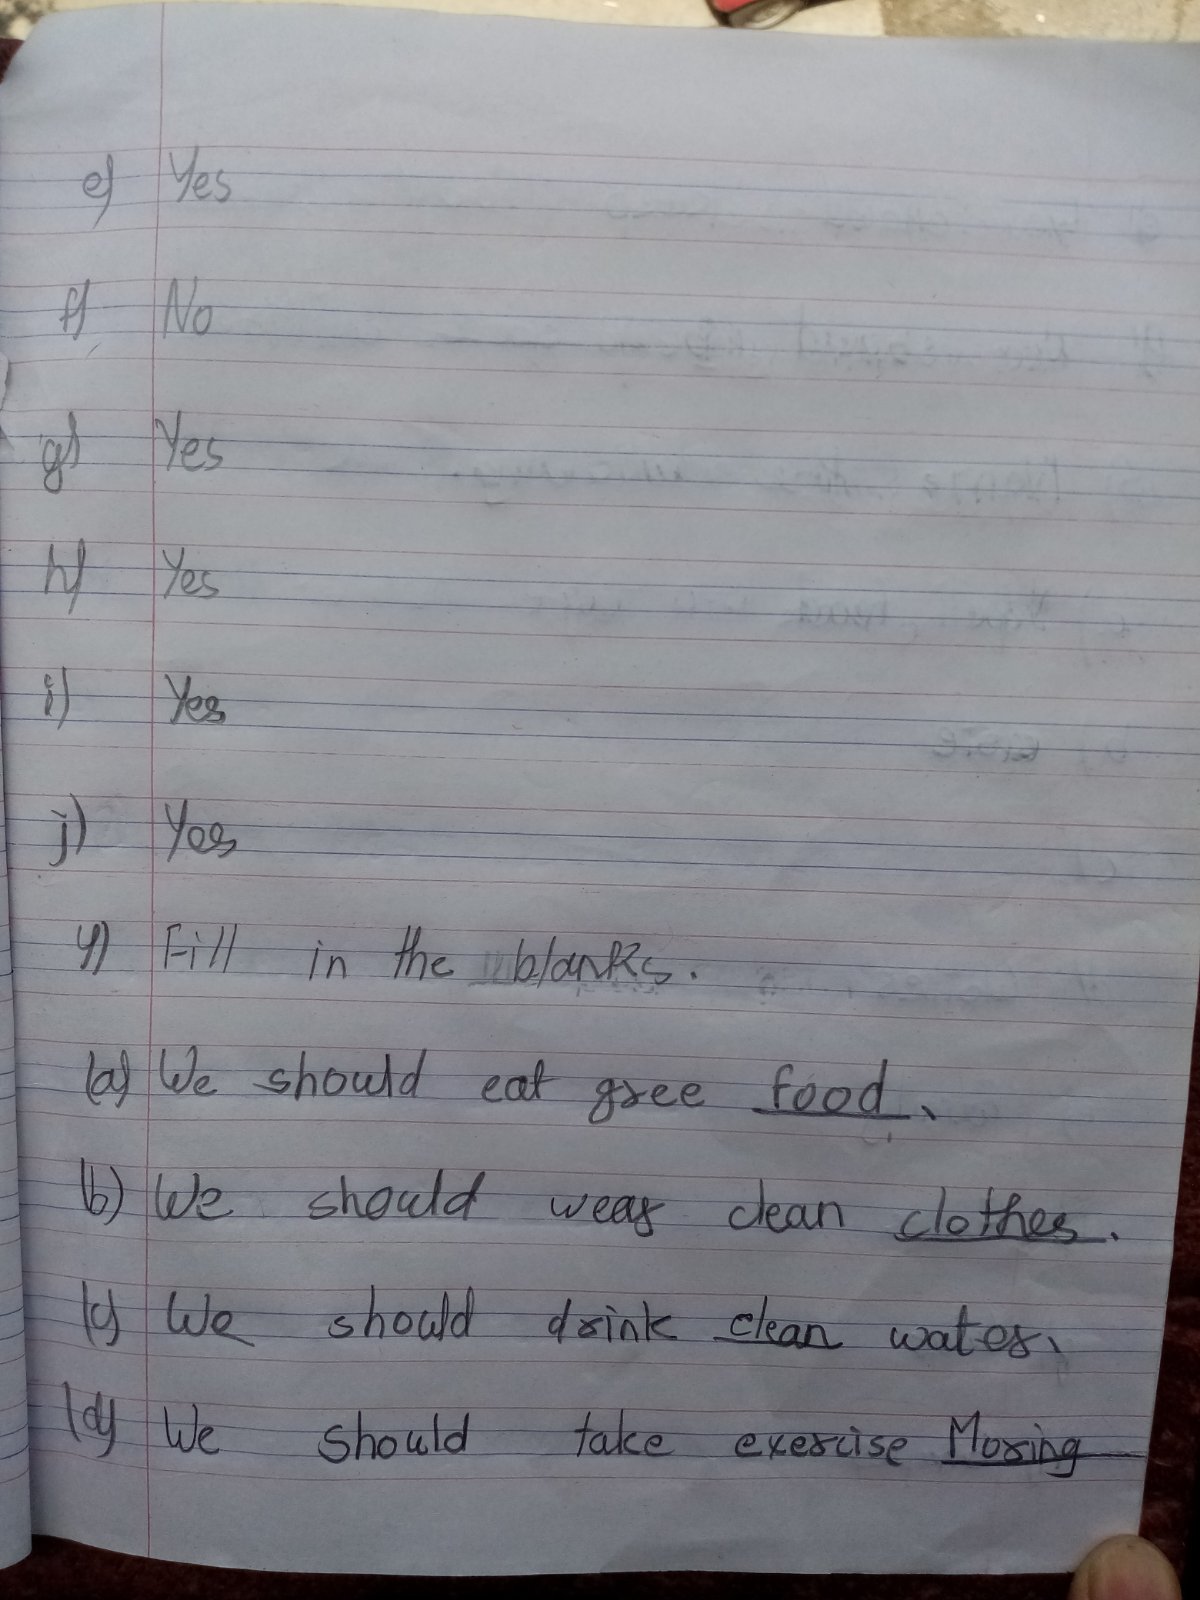 e) Yes
f) No
g) Yes
h) Yes
i) Yes
j) Yes
4) Fill in the blanks.
(a) We should eat gree food.
(b) We should wear clean clothes.
(c) We should drink clean water.
(d) We should take exercise Moring